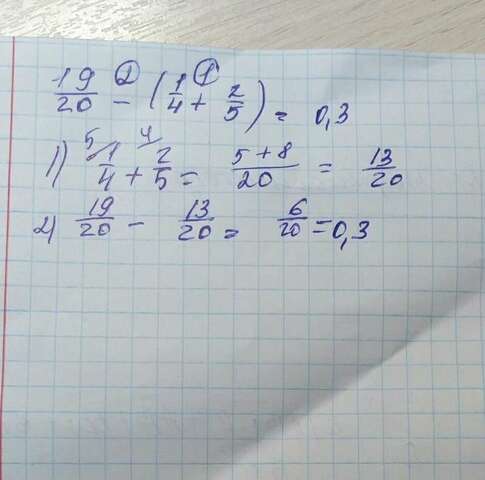 19/20 ② − (1/4 ① + 2/5) = 0,3
1) 5/ 1/4 + 4/ 2/5 = 5+8/20 = 13/20
2) 19/20 − 13/20 = 6/20 = 0,3